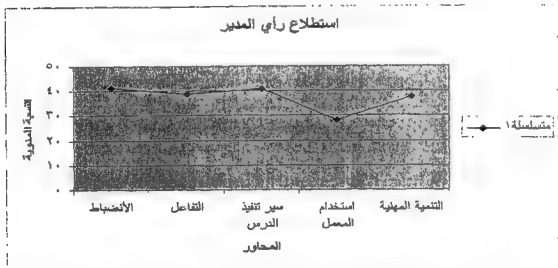 استطلاع رأي المدير
النسبة المئوية
٥٠
٤٠
٣٠
٢٠
١٠
٠
الأنضباط
التفاعل
سير تنفيذ الدرس
استخدام المعمل
التنمية المهنية
المحاور
متسلسلة١